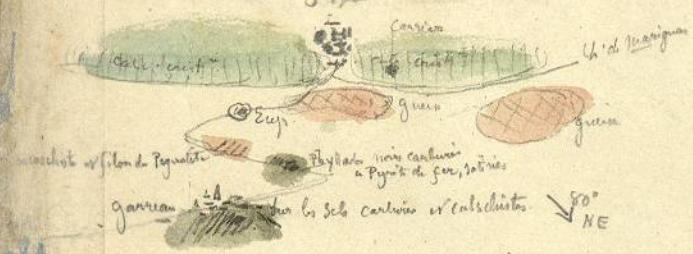 Carrière
Calcschiste
schiste
Ch. de Marignac
gneiss
gneiss
Eup.
micaschiste et filon de Pegmatite
Phyllades noirs carburés
à Pyrite de fer, satinés
Garreau
sur les sch carburés et calschistes
80°
NE